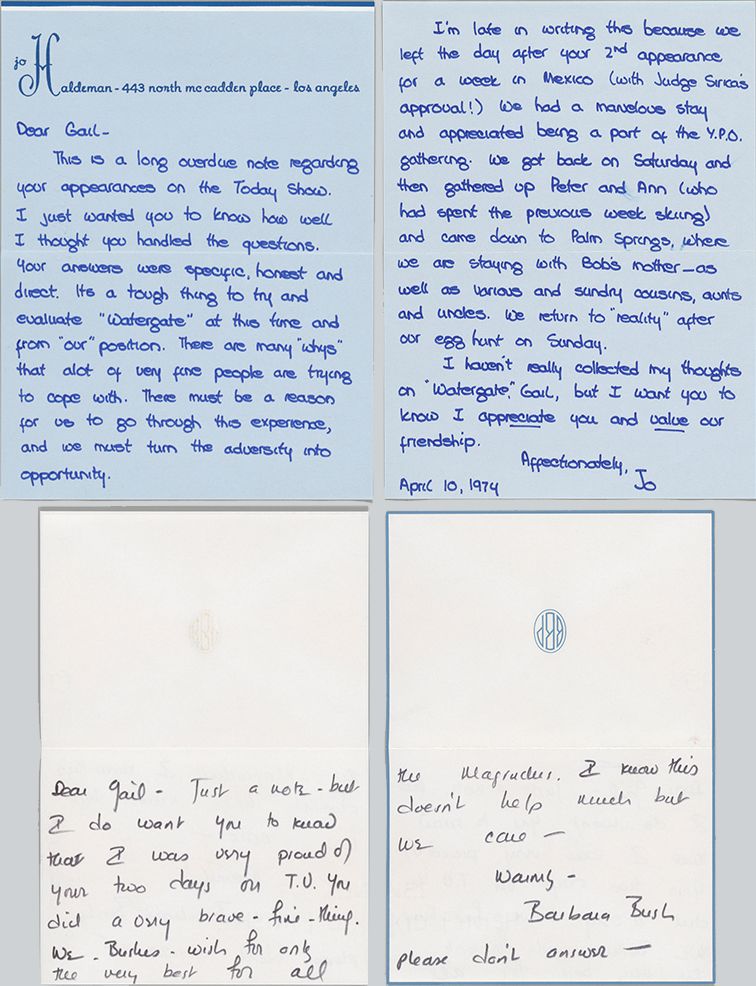 jo Haldeman - 443 north mc cadden place - los angeles
Dear Gail -
This is a long overdue note regarding
your appearances on the Today Show.
I just wanted you to know how well
I thought you handled the questions.
Your answers were specific, honest and
direct. Its a tough thing to try and
evaluate "Watergate" at this time and
from "our" position. There are many "whys"
that alot of very fine people are trying
to cope with. There must be a reason
for us to go through this experience,
and we must turn the adversity into
opportunity.
I'm late in writing this because we
left the day after your 2nd appearance
for a week in Mexico (with Judge Sirica's
approval!) We had a marvelous stay
and appreciated being a part of the Y.P.O.
gathering. We got back on Saturday and
then gathered up Peter and Ann (who
had spent the previous week skiing)
and came down to Palm Springs, where
we are staying with Bob's mother—as
well as various and sundry cousins, aunts
and uncles. We return to "reality" after
our egg hunt on Sunday.
I haven't really collected my thoughts
on "Watergate," Gail, but I want you to
know I appreciate you and value our
friendship.
Affectionately,
Jo
April 10, 1974
Dear Gail - Just a note - but
I do want you to know
that I was very proud of
your two days on T.V. You
did a very brave - fine - thing.
We - Bushes - wish for only
the very best for all
BBP
the Magruders. I know this
doesn't help much but
we care —
Warmly -
Barbara Bush
please don't answer —